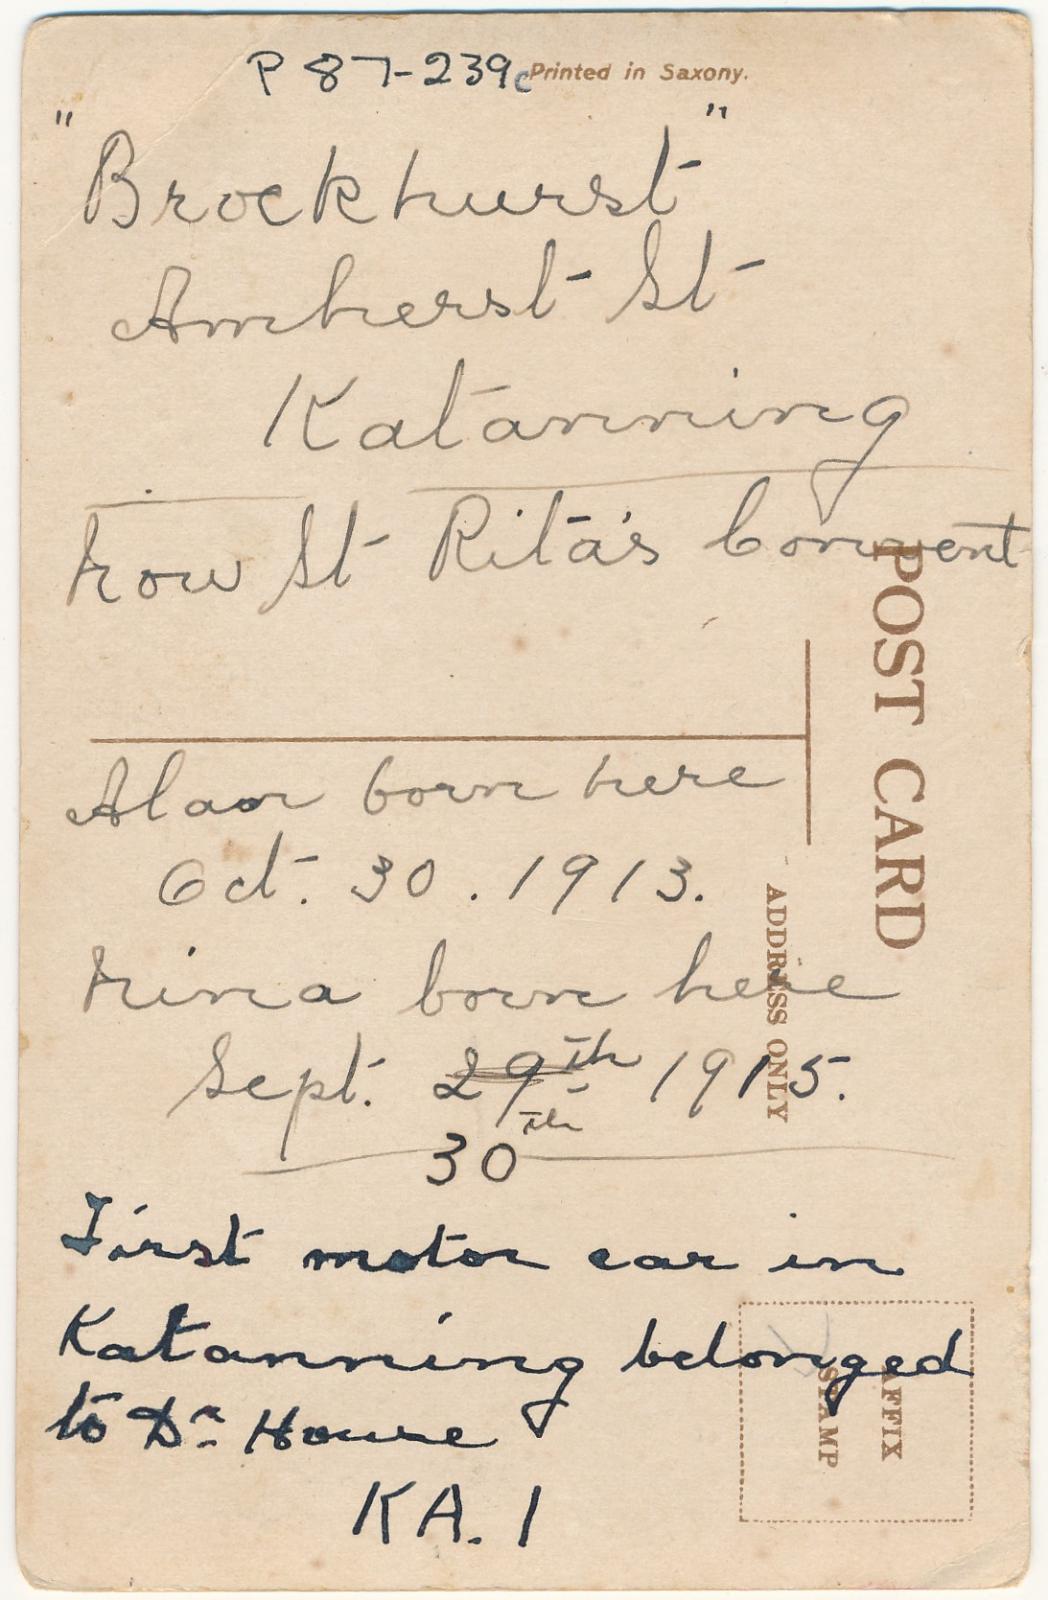 P 87-239c Printed in Saxony.
"Brockhurst"
Amherst St
Katanning
Now St Rita's Convent
POST CARD
Alan born here
Oct. 30. 1913.
ADDRESS ONLY
Nina born here
Sept. 29th 1915.
30th
First motor car in
Katanning belonged
to Dr House
KA. 1
AFFIX
STAMP